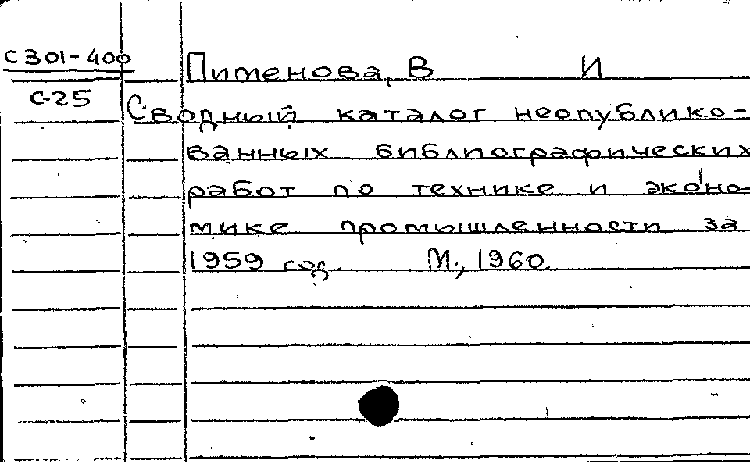 С301-400
С-25
Пименова, В И
Сводный каталог неопублико-
ванных библиографических
работ по технике и эконо-
мике промышленности за
1959 год. М., 1960.